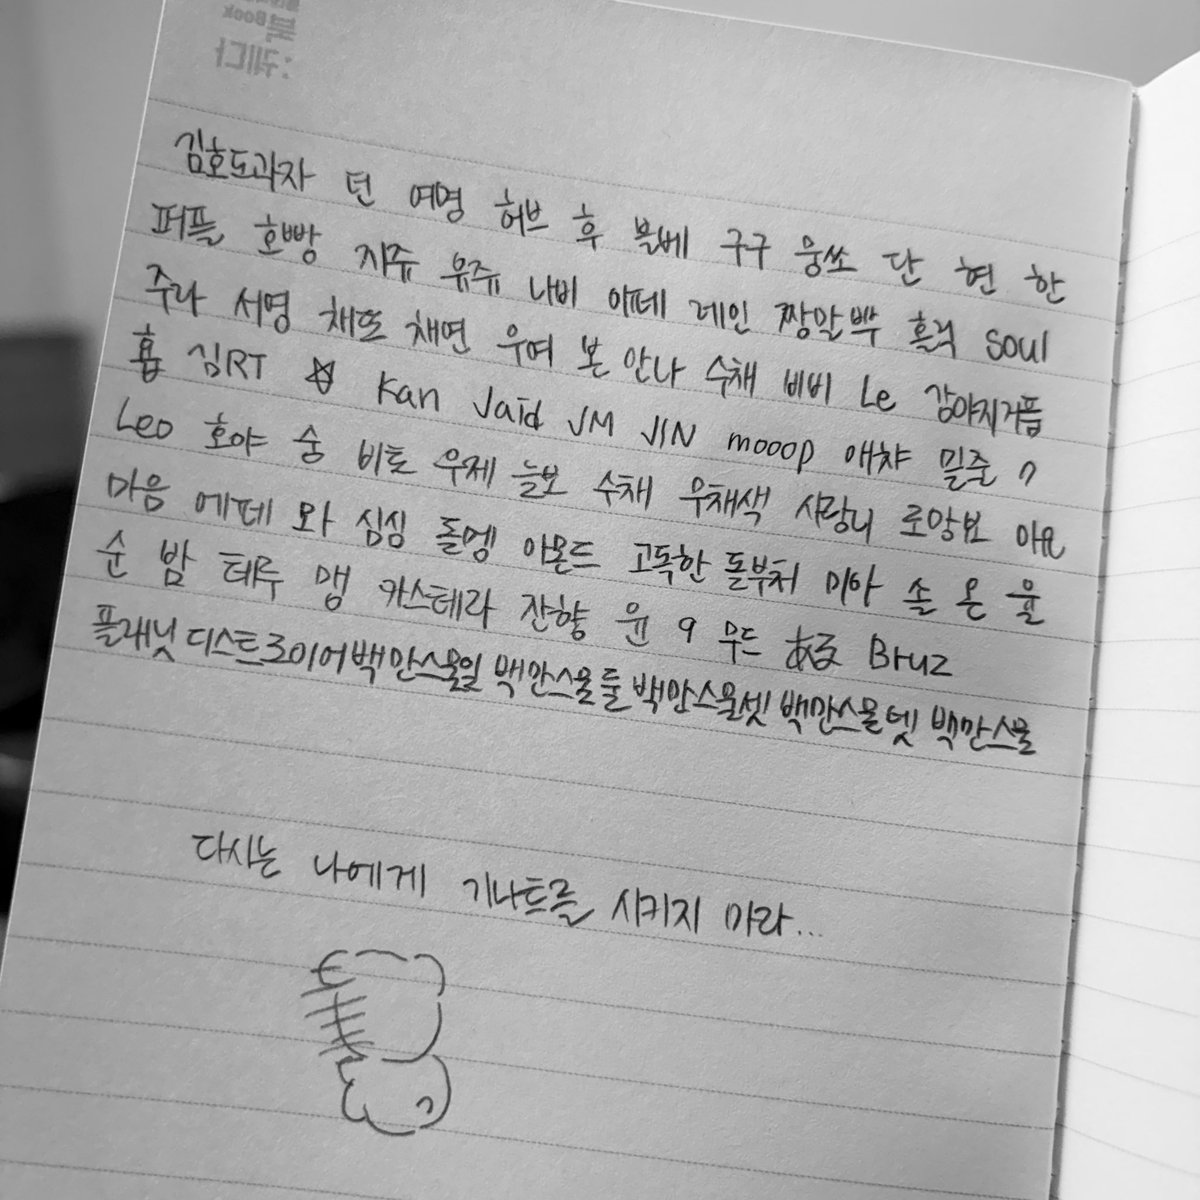 김호도과자 던 여명 허브 후 볼베 구구 웅쏘 단 현 한
퍼플 호빵 지쥬 유쥬 나비 아떼 레인 짱말뽀 흘릭 soul
주라 서명 채또 채연 우여 본 안나 수채 비비 Le 강아지거품
홉 심RT Kan Jaid JM JIN mooop 애챠 밀줄 ?
Leo 호야 숭 비토 우제 늘보 수채 우채색 사랑니 로앙보 아요
마음 에떼 와 심심 돌멩 아몬드 고독한 돌부처 미아 솔 온 율
순 밤 테루 맹 카스테라 잔향 윤 9 무드 ある Bruz
플래닛 디스트로이어 백만스물일 백만스물둘 백만스물셋 백만스물넷 백만스물
다시는 나에게 기나트를 시키지 마라...